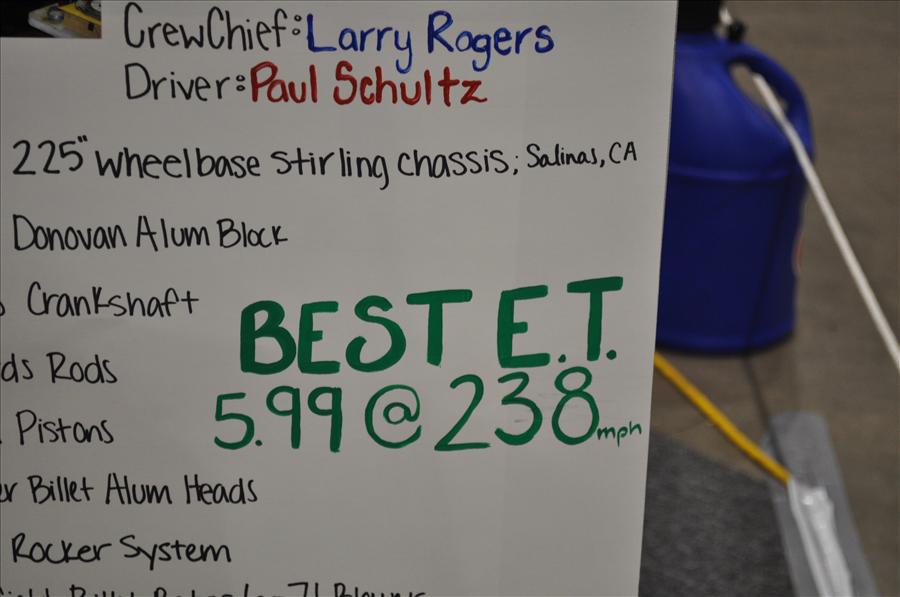 CrewChief: Larry Rogers
Driver: Paul Schultz
225" wheelbase Stirling chassis; Salinas, CA
Donovan Alum Block
Crankshaft
Rods
Pistons
BEST E.T.
5.99 @ 238 mph
Billet Alum Heads
Rocker System
71